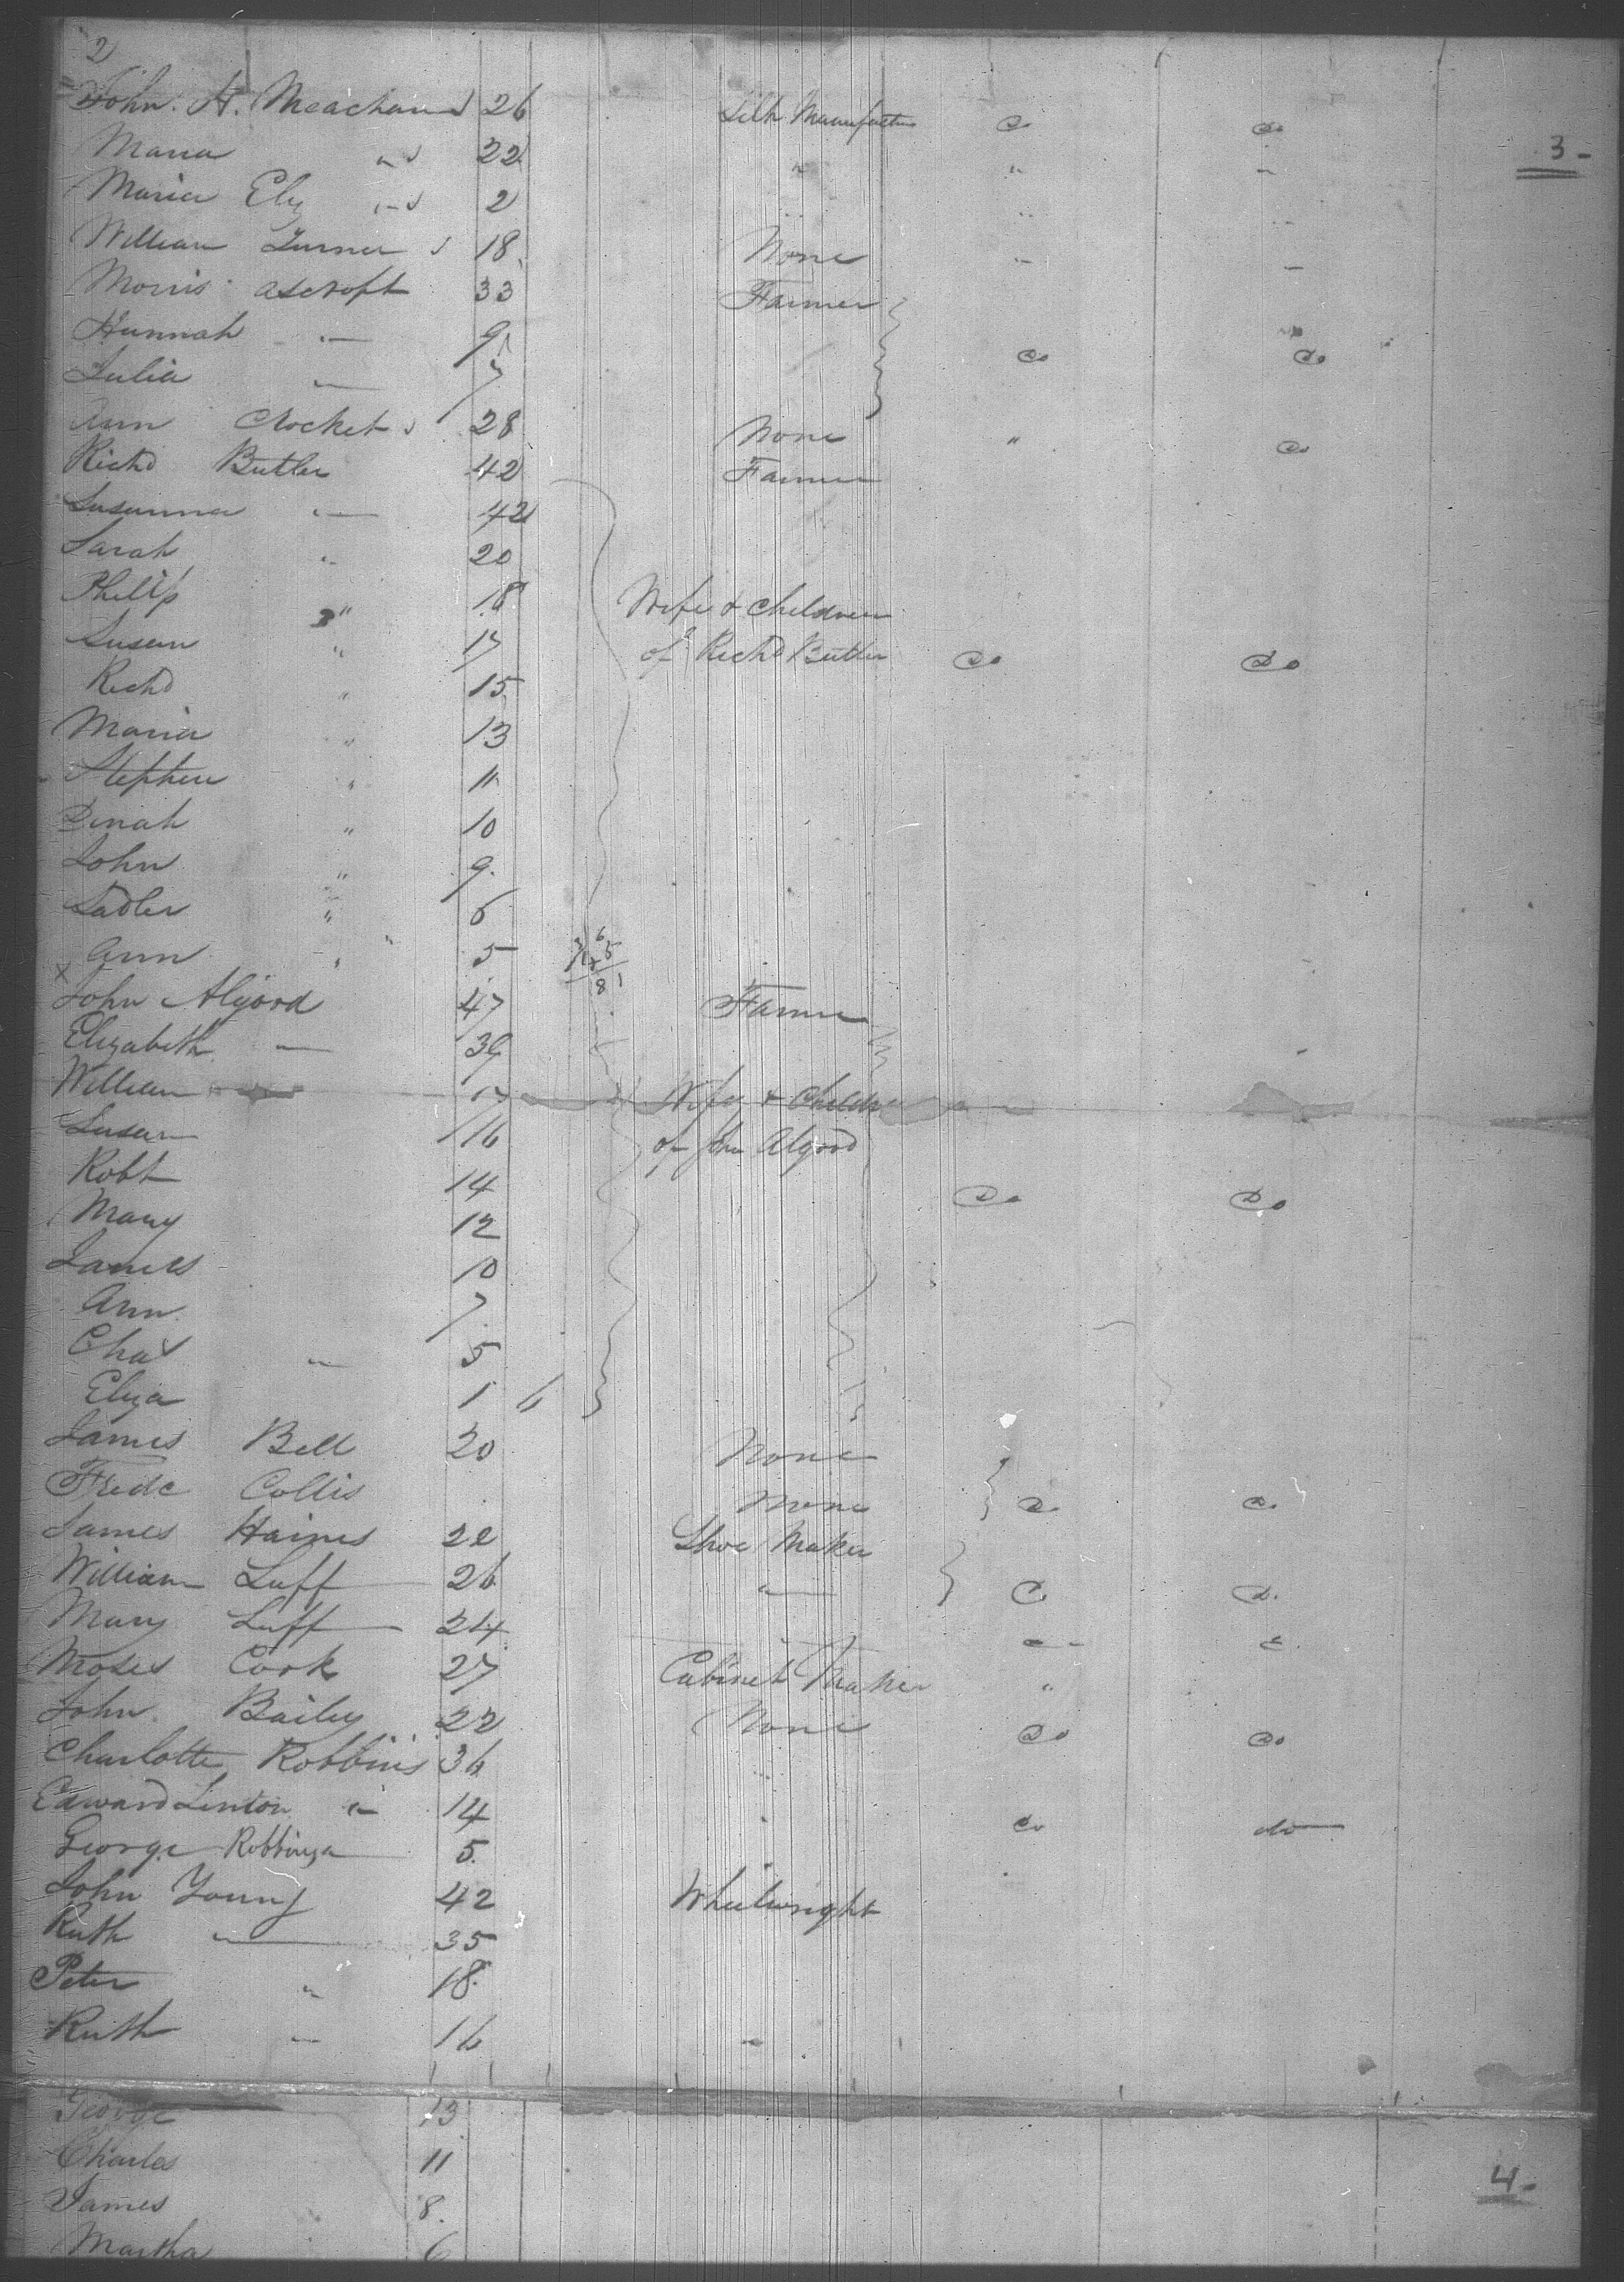 2
John. H. Meacham 26 Silk Manufactur Do Do
3-
Maria " 22 " " "
Maria Eliz " 2 " "
William Turner 18 None " "
Morris Ascroft 33 Farmer
Hannah " 9 Do Do
Julia " 7
Ann Crocket 28 None " Do
Richd Butler 42 Farmer
Susanna " 42
Sarah " 20
Philip " 18 Wife & Children
Susan " 17 of Richd Butler Do Do
Richd " 15
Maria " 13
Stephen " 11
Dinah " 10
John " 9
Sadler " 6
Ann " 5
x John Algood 47 Farmer
Elizabeth — 39
William 17 Wife & Childr
Susan 16 of Jhn Algood
Robt 14 Do Do
Mary 12
James 10
Ann 7
Chas " 5
Eliza 1 6
James Bell 20 None
Fredc Collis None Do Do
James Haines 22 Shoe Maker
William Luff 26 " Do Do
Mary Luff 24
Moses Cook 27 Cabinet Maker "
John Bailey 22 None Do Do
Charlotte Robbins 36
Edward Linton " 14 Do do
George Robbins 5
John Young 42 Wheelwright
Ruth " 35
Peter " 18
Ruth " 16 "
George 13
Charles 11
4-
James 8
Martha 6